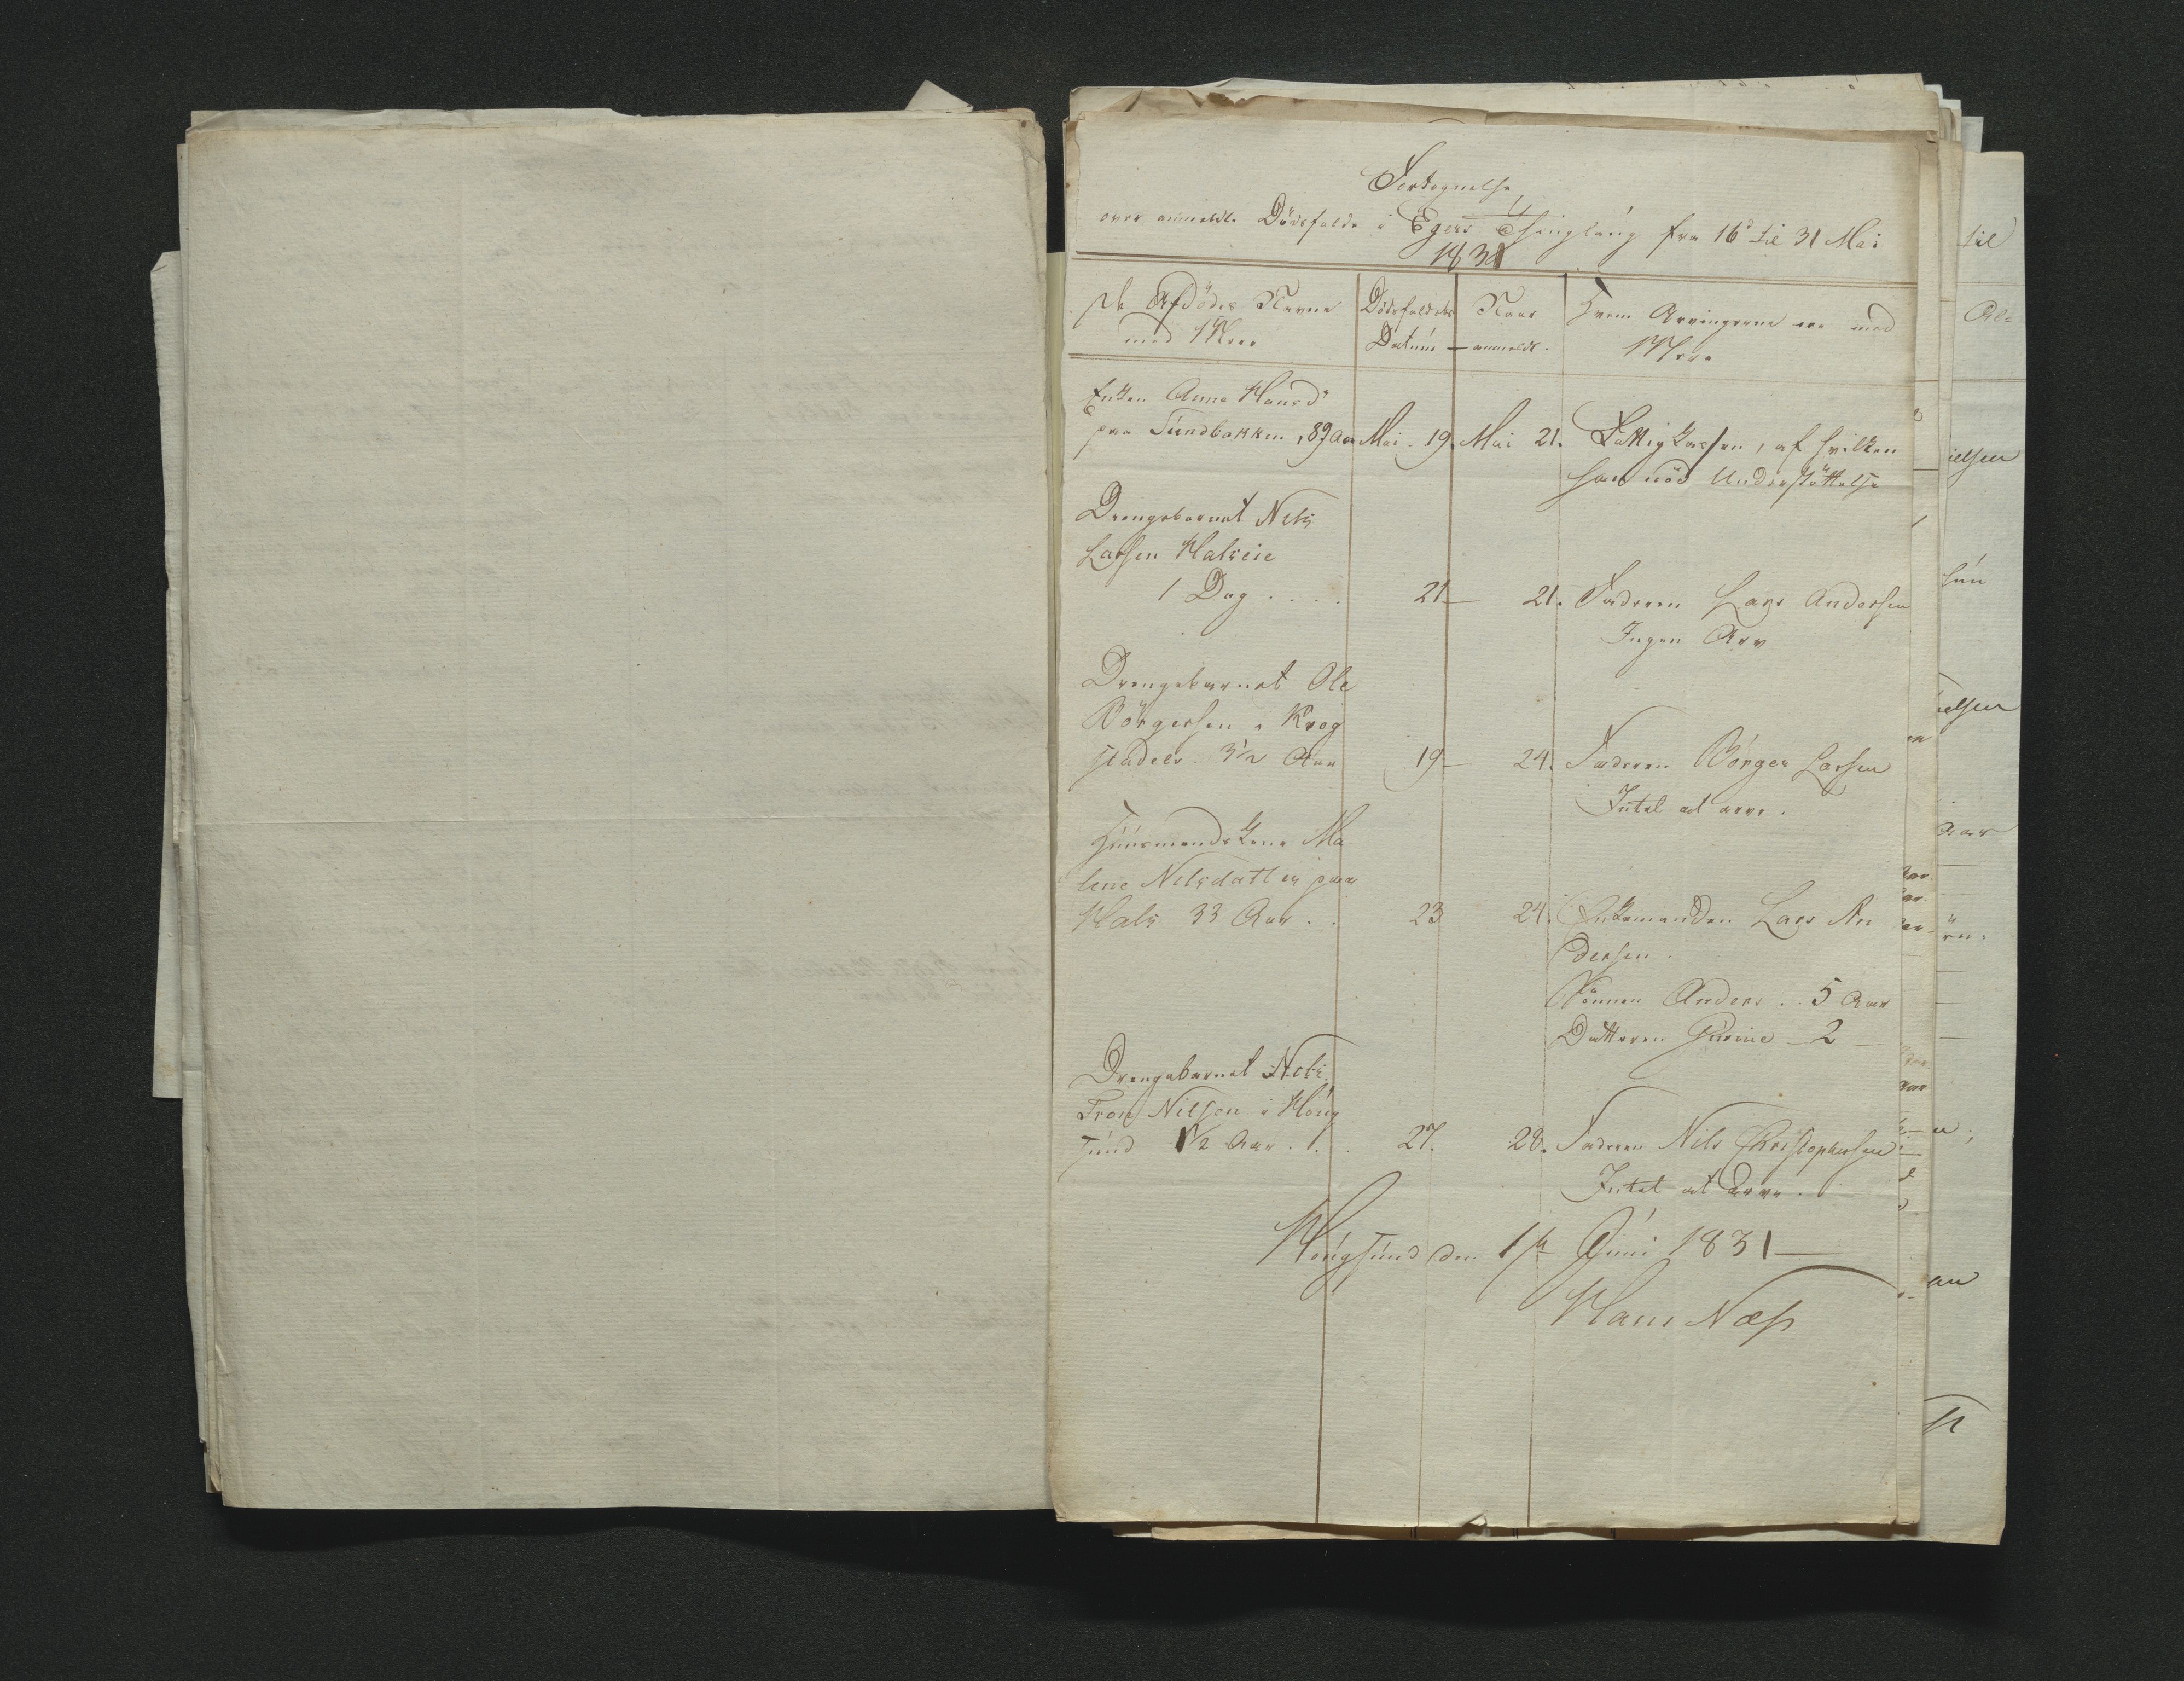 Fortegnelse
over anmeldte Dödsfalde i Egers Thinglaug fra 16de til 31 Mai
1831
De Afdödes Navne
med Mere
Dödsfaldets
Datum
Naar
anmeldt.
Hvem Arvingerne ere med
Mere
Enken Anne Hansdr
paa Sundbakken, 89 Aar Mai 19. Mai 21. Fattigkassen, af hvilken
hun nöd Understöttelse
Drengebarnet Nels
Larsen Halseie
1 Dag .... 21— 21. Faderen Lars Andersen
Ingen Arv
Drengebarnet Ole
Börgersen i Krog
stadelv. 3½ Aar 19— 24. Faderen Börger Larsen
Intet at arve.
Huusmandskone Ma
lene Nelsdatter paa
Hals 33 Aar.. 23 24. Enkemanden Lars An
dersen.
Sönnen Anders .. 5 Aar
Datteren Gurine — 2 —
Drengebarnet Nels
Tron Nilsen i Houg
sund 1½ Aar... 27. 28. Faderen Nils Christophersen
Intet at arve.
Hougsund den 1ste Juni 1831—
Hans Næss